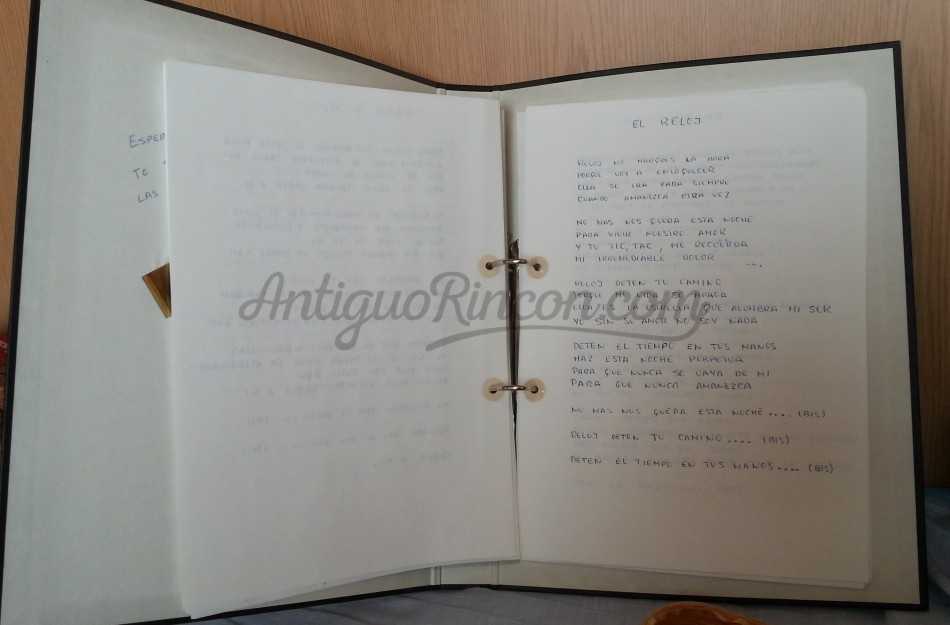 ESPER
TE
LAS
EL RELOJ
RELOJ NO MARQUES LA HORA
PORQUE VOY A ENLOQUECER
ELLA SE IRA PARA SIEMPRE
CUANDO AMANEZCA OTRA VEZ
NO MAS NOS QUEDA ESTA NOCHE
PARA VIVIR NUESTRO AMOR
Y TU TIC, TAC, ME RECUERDA
MI IRREMEDIABLE DOLOR
RELOJ DETEN TU CAMINO
MI VIDA SE APAGA
ELLA ES LA ESTRELLA QUE ALUMBRA MI SER
YO SIN SU AMOR NO SOY NADA
DETEN EL TIEMPO EN TUS MANOS
HAZ ESTA NOCHE PERPETUA
PARA QUE NUNCA SE VAYA DE MI
PARA QUE NUNCA AMANEZCA
NO MAS NOS QUEDA ESTA NOCHE.... (BIS)
RELOJ DETEN TU CAMINO.... (BIS)
DETEN EL TIEMPO EN TUS MANOS.... (BIS)
AntiguoRincon.com